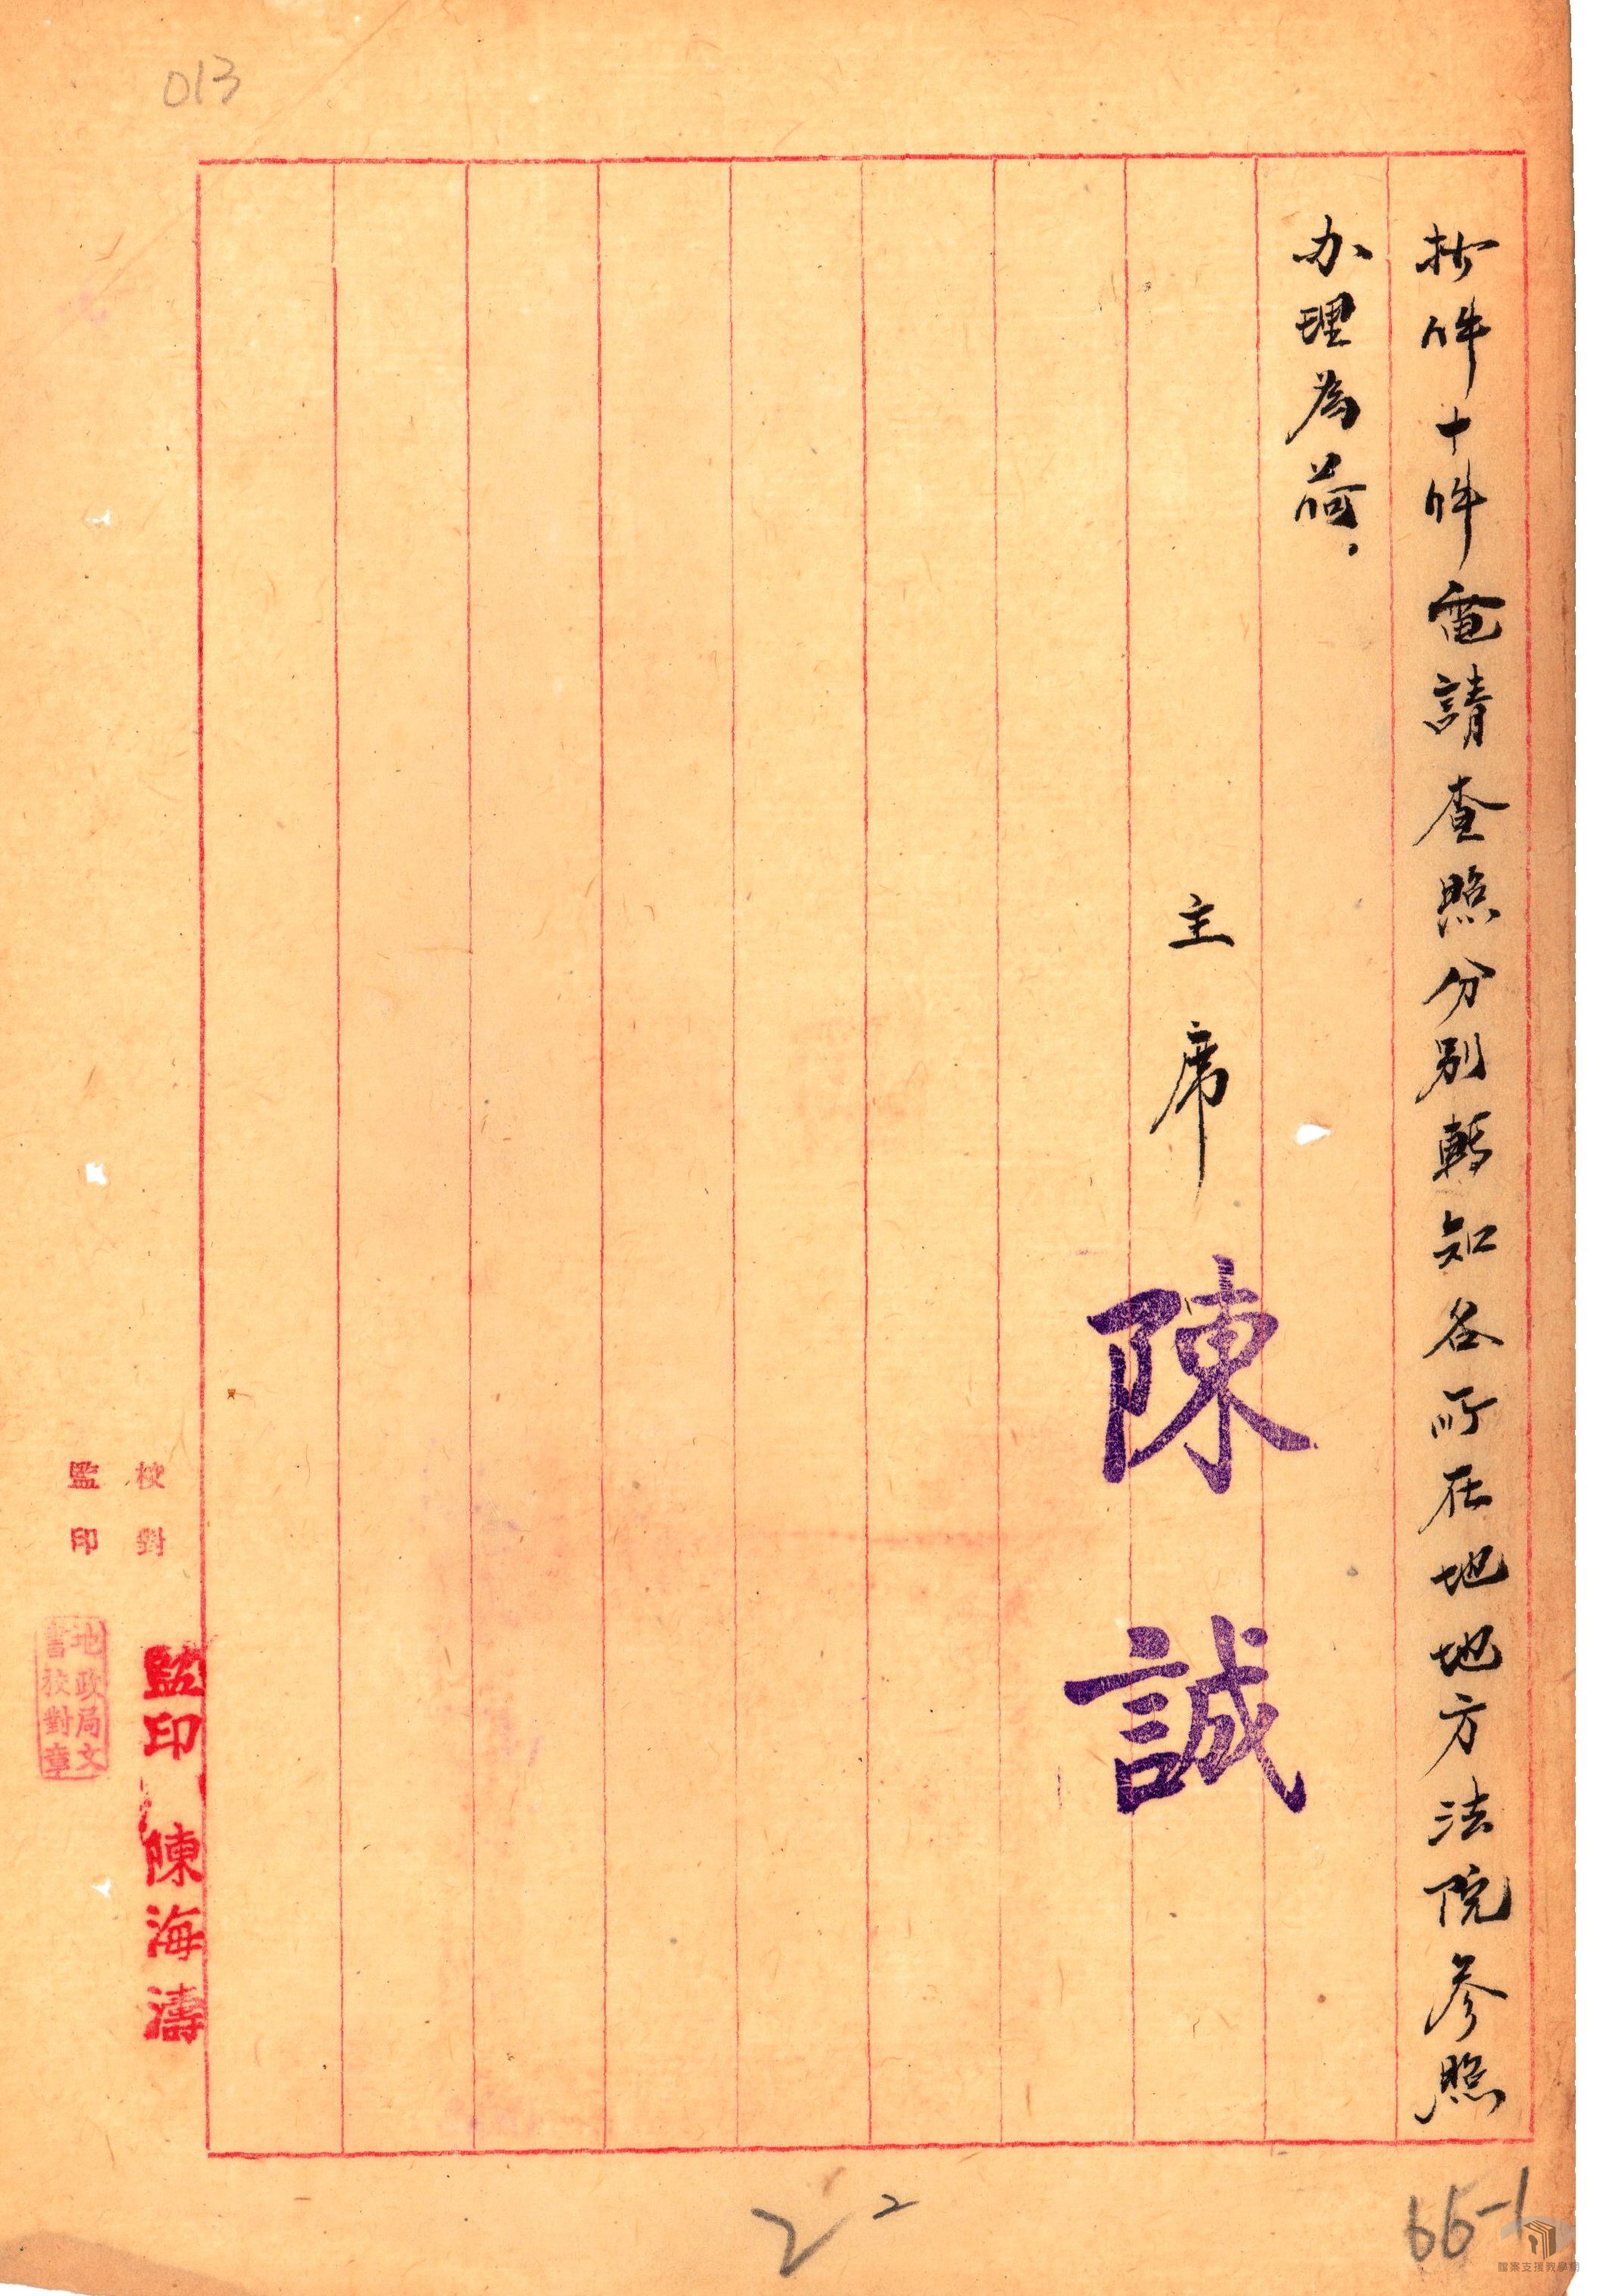 013
抄件十件電請查照分別轉知各所在地地方法院參照
办理為荷.
主席 陳誠
校對 監印陳海濤
監印
地政局文
書校對章
2 2
66-1
檔案支援教學網